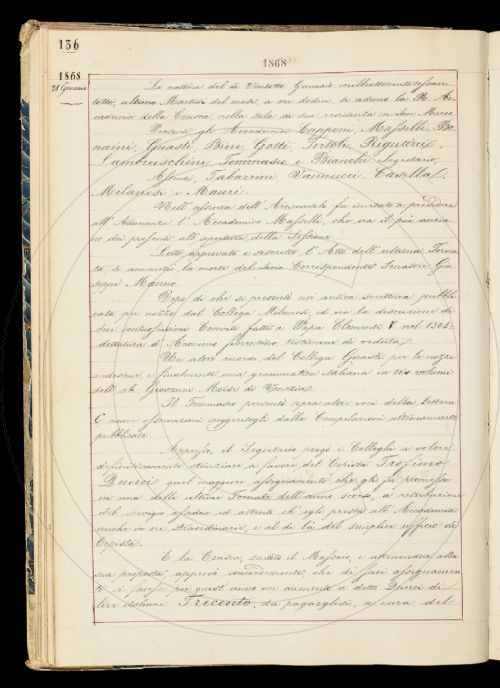 136
1868
1868
28 Gennaio
La mattina del dì Ventotto Gennaio milleottocentosessan-
totto, ultimo Martedì del mese, a ore dodici, si adunò la R. Ac-
cademia della Crusca nella sala di sua residenza in San Marco.
Presenti gli Accademici Capponi, Masselli, Bo-
naini, Guasti, Bini, Gotti, Tortoli, Rigutini,
Lambruschini, Tommaseo e Bianchi Segretario;
Assenti, Tabarrini, Vannucci, Casella,
Milanesi e Mauri.
Nell'assenza dell'Arciconsolo fu invitato a presedere
all'Adunanza l'Accademico Masselli, che era il più anzia-
no dei presenti all'apertura della Sessione.
Letto approvato e sottoscritto l'Atto dell'ultima Torna-
ta, si annunziò la morte del Socio Corrispondente Senatore Giu-
seppe Manno.
Dopo di che si presentò un'antica scrittura pubbli-
cata per nozze dal Collega Milanesi, ed era la descrizione di
due Conviti fatti a Papa Clemente V nel 1308
dettatura d'Anonimo fiorentino testimone di veduta.
Un altro ricordo del Collega Guasti per le nozze
e finalmente una grammatica italiana in tre volumi
dell'ab. Giovanni Moisè di Venezia.
Il Tommaseo presentò sopra altre voci della lettera
C nuove osservazioni suggeritegli dalla Compilazione ultimamente
pubblicata.
Appresso, il Segretario pregò i Colleghi a volere
definitivamente stanziare a favore del Copista Trofimo
Querci quel maggiore assegnamento che gli fu promesso
in una delle ultime Tornate dell'anno scorso, a retribuzione
del servigio assiduo ed attento ch'egli presta all'Accademia
anche in ore straordinarie, e al di là del semplice ufficio di
Copista.
E la Crusca, sentito il Massaio, e annuendo alla
sua proposta, approvò concordemente, che di fuori assegnamen-
to si faccia per quest'anno un aumento a detto Querci di
lire italiane Trecento, da pagarglisi, a cura del